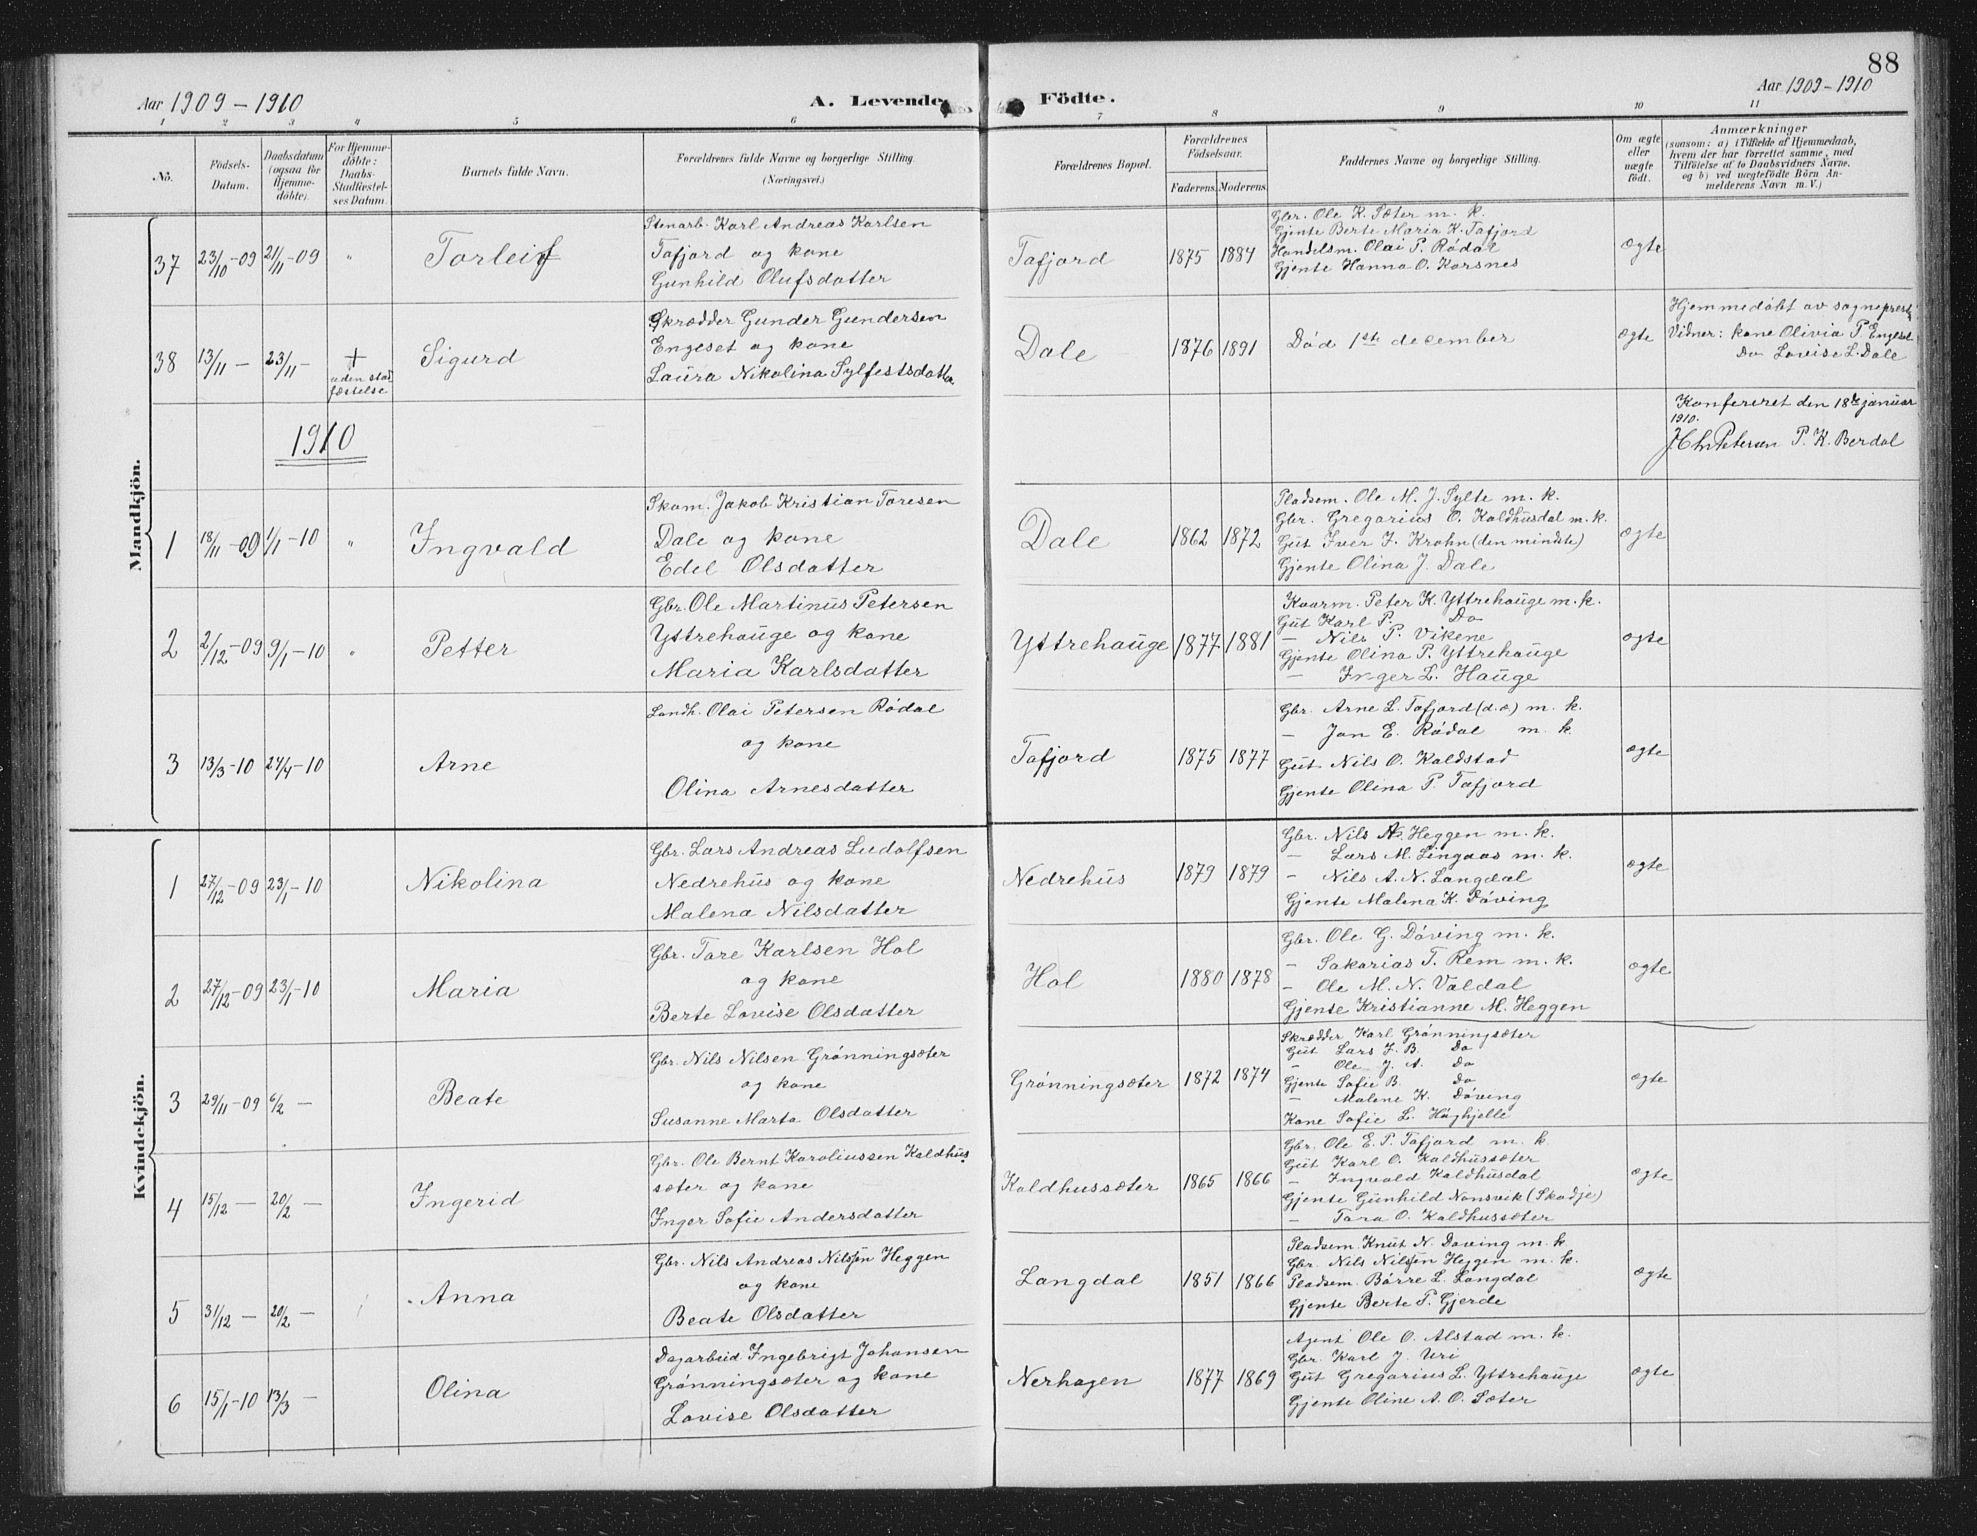 88
Aar 1909 – 1910
A. Levende Födte.
Aar 1909 – 1910
1 2 3 4 5 6 7 8 9 10 11
No.
Födsels-Datum.
Daabsdatum (ogsaa for Hjemme-döbte).
For Hjemme-döbte: Daabs-Stadfæstel-ses Datum.
Barnets fulde Navn.
Forældrenes fulde Navne og borgerlige Stilling. (Næringsvei.)
Forældrenes Bopæl.
Forældrenes Födselsaar.
Faderens. Moderens.
Faddernes Navne og borgerlige Stilling.
Om ægte eller uægte födt.
Anmærkninger
(saasom: a) i Tilfælde af Hjemmedaab, hvem der har forrettet samme, med Tilföielse af to Daabsvidners Navne, og b) ved uægtefödte Börn An-melderens Navn m. V.)
Mandkjön.
37 23/10-09 21/11-09 " Torleif
Stenarb. Karl Andreas Karlsen
Tafjord og kone
Gunhild Olufsdatter
Tafjord 1875 1884
Gbr. Ole K. Sæter m. k.
Gjente Berte Maria K. Tafjord
Handelsm. Olai P. Rødal
Gjente Hanna O. Korsnes
ægte
38 13/11 – 23/11 – + uden stad fæstelse Sigurd
Skrædder Gunder Gundersen
Engeset og kone
Laura Nikolina Sylfestsdatter
Dale 1876 1891 Død 1ste december ægte
Hjemmedøbt av sogneprest
Vidner: kone Olivia P. Engeset
Do Lovise L. Dale
1910
Konfereret den 18de januar
1910.
P. K. Berdal
1 18/11-09 1/1-10 " Ingvald
Skom. Jakob Kristian Toresen
Dale og kone
Edel Olsdatter
Dale 1862 1872
Pladsem. Ole M. J. Sylte m. k.
Gbr. Gregorius O. Kaldhusdal m. k.
Gut Iver J. Krohn (den mindste)
Gjente Olina J. Dale
ægte
2 2/12-09 9/1-10 " Petter
Gbr. Ole Martinus Petersen
Yttrehauge og kone
Maria Karlsdatter
Yttrehauge 1877 1881
Kvarm. Peter K. Yttrehauge m. k.
Gut Karl P. Do
– Nils P. Vikene
Gjente Olina P. Yttrehauge
– Inger L. Hauge
ægte
3 13/3-10 24/4-10 Arne
Landh. Olai Petersen Rødal
og kone
Olina Arnesdatter
Tafjord 1875 1877
Gbr. Arne L. Tafjord (d.æ) m. k.
– Jon E. Rødal m. k.
Gut Nils O. Kaldstad
Gjente Olina P. Tafjord
ægte
Kvindekjön.
1 27/12-09 23/1-10 Nikolina
Gbr. Lars Andreas Ludolfsen
Nedrehus og kone
Malena Nilsdatter
Nedrehus 1879 1879
Gbr. Nils A. Heggen m. k.
– Lars M. Lingaas m. k.
– Nils A. N. Langdal
Gjente Malena K. Døving
ægte
2 27/12-09 23/1-10 Maria
Gbr. Tore Karlsen Hol
og kone
Berte Lovise Olsdatter
Hol 1880 1878
Gbr. Ole G. Døving m. k.
– Sakarias T. Rem m. k.
– Ole M. N. Valdal
Gjente Kristianne M. Heggen
ægte
3 29/11-09 6/2 – Beate
Gbr. Nils Nilsen Grønningsæter
og kone
Susanne Marta Olsdatter
Grønningsæter 1872 1874
Skrædder Karl Grønningsæter
Gut Lars J. B. Do
– Ole J. A. Do
Gjente Sofie B. Do
– Malene K. Døving
Kone Sofie L. Høghjelle
ægte
4 15/12 – 20/2 – Ingerid
Gbr. Ole Bernt Karoliussen Kaldhus
sæter og kone
Inger Sofie Andersdatter
Kaldhussæter 1865 1866
Gbr. Ole E. P. Tafjord m. k.
Gut Karl O. Kaldhussæter
– Ingvald Kaldhusdal
Gjente Gunhild Nonsvik (Skodje)
– Tora O. Kaldhussæter
ægte
5 31/12 – 20/2 – Anna
Gbr. Nils Andreas Nilssen Heggen
og kone
Beate Olsdatter
Langdal 1851 1866
Pladsem. Knut N. Døving m. k
Gbr. Nils Nilssen Heggen m. k.
Pladsem. Børre L. Langdal
Gjente Berte P. Gjerde
ægte
6 15/1-10 13/3 – Olina
Dagarbeid Ingebrigt Johansen
Grønningsæter og kone
Lovise Olsdatter
Nerhagen 1877 1869
Agent Ole O. Alstad m. k.
Gbr. Karl J. Uri
Gut Gregorius L. Yttrehauge
Gjente Oline A. O. Sæter
ægte